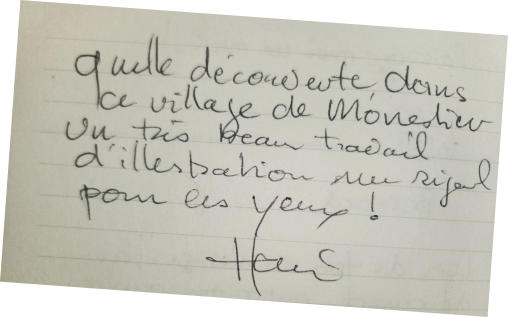 Quelle découverte dans
ce village de Monestier
Un très beau travail
d'illestration un régal
pour les yeux !